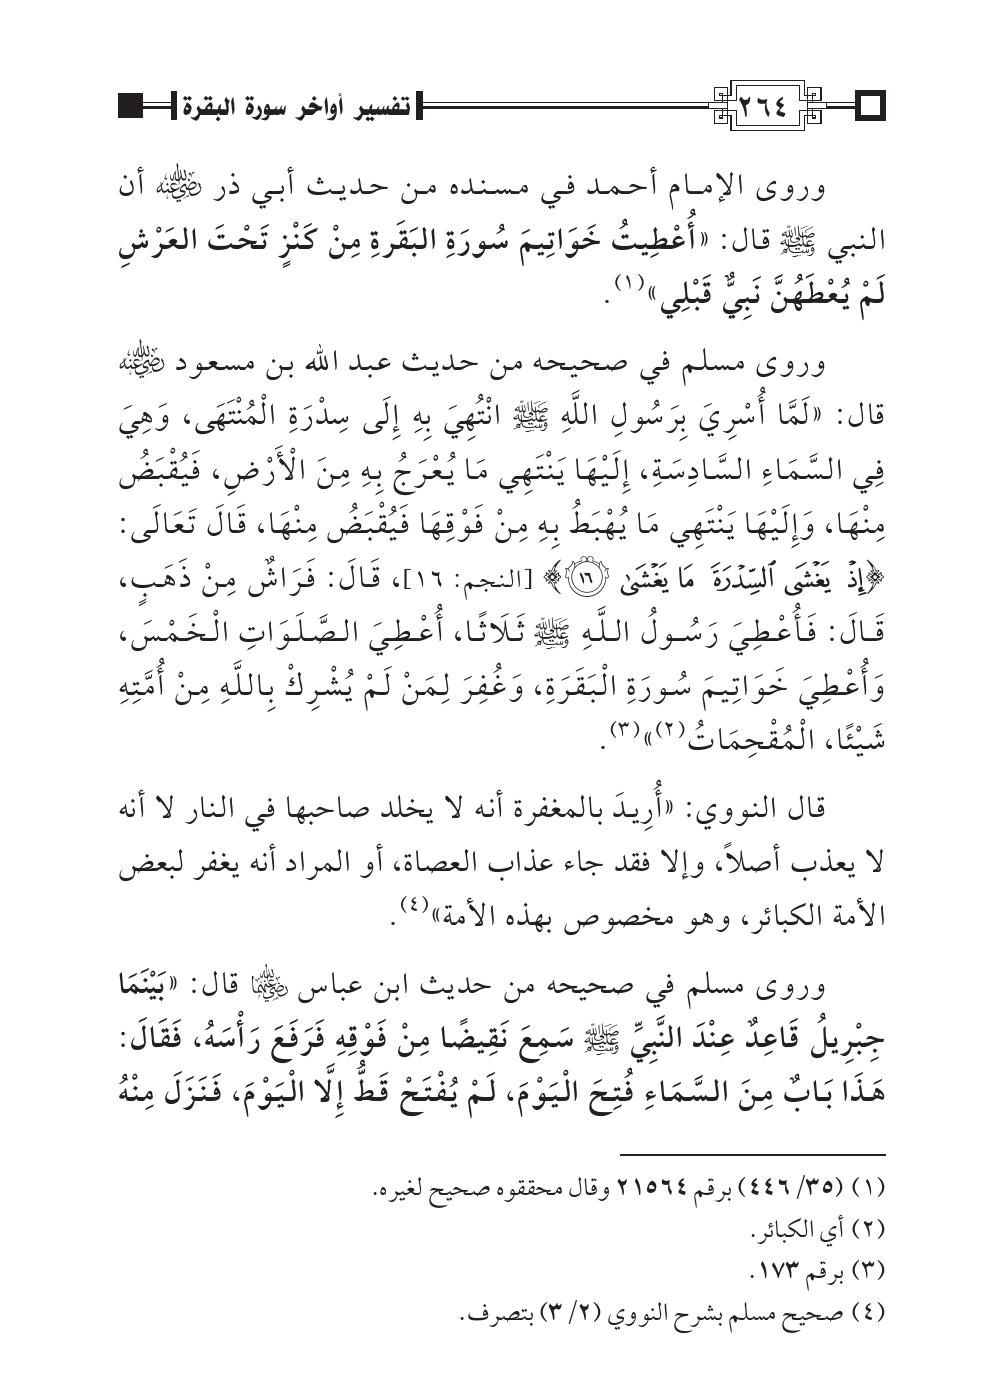 ٢٦٤ تفسير أواخر سورة البقرة
وروى الإمام أحمد في مسنده من حديث أبي ذر رضي الله عنه أن
النبي ﷺ قال: «أُعْطِيتُ خَوَاتِيمَ سُورَةِ البَقَرةِ مِنْ كَنْزٍ تَحْتَ العَرْشِ
لَمْ يُعْطَهُنَّ نَبِيٌّ قَبْلِي»(١).
وروى مسلم في صحيحه من حديث عبد الله بن مسعود رضي الله عنه
قال: «لَمَّا أُسْرِيَ بِرَسُولِ اللَّهِ ﷺ انْتُهِيَ بِهِ إِلَى سِدْرَةِ الْمُنْتَهَى، وَهِيَ
فِي السَّمَاءِ السَّادِسَةِ، إِلَيْهَا يَنْتَهِي مَا يُعْرَجُ بِهِ مِنَ الْأَرْضِ، فَيُقْبَضُ
مِنْهَا، وَإِلَيْهَا يَنْتَهِي مَا يُهْبَطُ بِهِ مِنْ فَوْقِهَا فَيُقْبَضُ مِنْهَا، قَالَ تَعَالَى:
﴿إِذْ يَغْشَى ٱلسِّدْرَةَ مَا يَغْشَىٰ ١٦﴾ [النجم: ١٦]، قَالَ: فَرَاشٌ مِنْ ذَهَبٍ،
قَالَ: فَأُعْطِيَ رَسُولُ اللَّهِ ﷺ ثَلَاثًا، أُعْطِيَ الصَّلَوَاتِ الْخَمْسَ،
وَأُعْطِيَ خَوَاتِيمَ سُورَةِ الْبَقَرَةِ، وَغُفِرَ لِمَنْ لَمْ يُشْرِكْ بِاللَّهِ مِنْ أُمَّتِهِ
شَيْئًا، الْمُقْحِمَاتُ(٢)»(٣).
قال النووي: «أُرِيدَ بالمغفرة أنه لا يخلد صاحبها في النار لا أنه
لا يعذب أصلاً، وإلا فقد جاء عذاب العصاة، أو المراد أنه يغفر لبعض
الأمة الكبائر، وهو مخصوص بهذه الأمة»(٤).
وروى مسلم في صحيحه من حديث ابن عباس رضي الله عنهما قال: «بَيْنَمَا
جِبْرِيلُ قَاعِدٌ عِنْدَ النَّبِيِّ ﷺ سَمِعَ نَقِيضًا مِنْ فَوْقِهِ فَرَفَعَ رَأْسَهُ، فَقَالَ:
هَذَا بَابٌ مِنَ السَّمَاءِ فُتِحَ الْيَوْمَ، لَمْ يُفْتَحْ قَطُّ إِلَّا الْيَوْمَ، فَنَزَلَ مِنْهُ
(١) (٣٥/ ٤٤٦) برقم ٢١٥٦٤ وقال محققوه صحيح لغيره.
(٢) أي الكبائر.
(٣) برقم ١٧٣.
(٤) صحيح مسلم بشرح النووي (٢/ ٣) بتصرف.